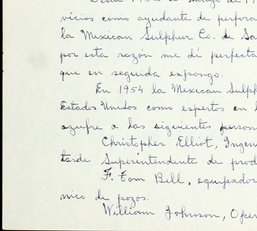 vicios como ayudante de perfora
la Mexican Sulphur Co. de Sa
por esta razón me di perfecta
que en seguida expongo.
En 1954 la Mexican Sulph
Estados Unidos como expertos en l
azufre a las siguientes person
Christopher Elliot, Ingen
tarde Superintendente de prod
F. Tom Bell, equipador
nico de pozos.
William Johnson, Oper